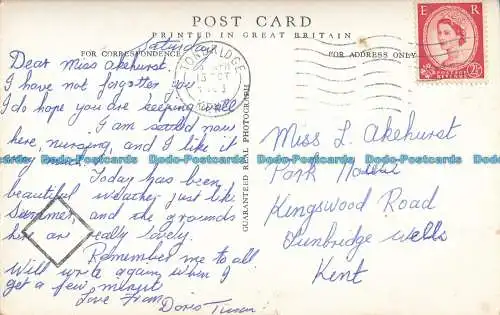 POST CARD
PRINTED IN GREAT BRITAIN
FOR CORRESPONDENCE
FOR ADDRESS ONLY
GUARANTEED REAL PHOTOGRAPH
E R
POSTAGE REVENUE
2½
TONBRIDGE
KENT
Saturday
Dear Miss Akehurst.
I have not forgotten you
I do hope you are keeping well
I am settled now
here, nursing, and I like it
very much.
Today has been
beautiful weather, just like
Summer, and the grounds
here are really lovely.
Remember me to all
Will write again when I
get a few minutes
Love From
Doris
Miss L. Akehurst
Park
Kingswood Road
Tunbridge Wells
Kent
Dodo-Postcards Dodo-Postcards Dodo-Postcards Dodo-Postcards Dodo-Postcards